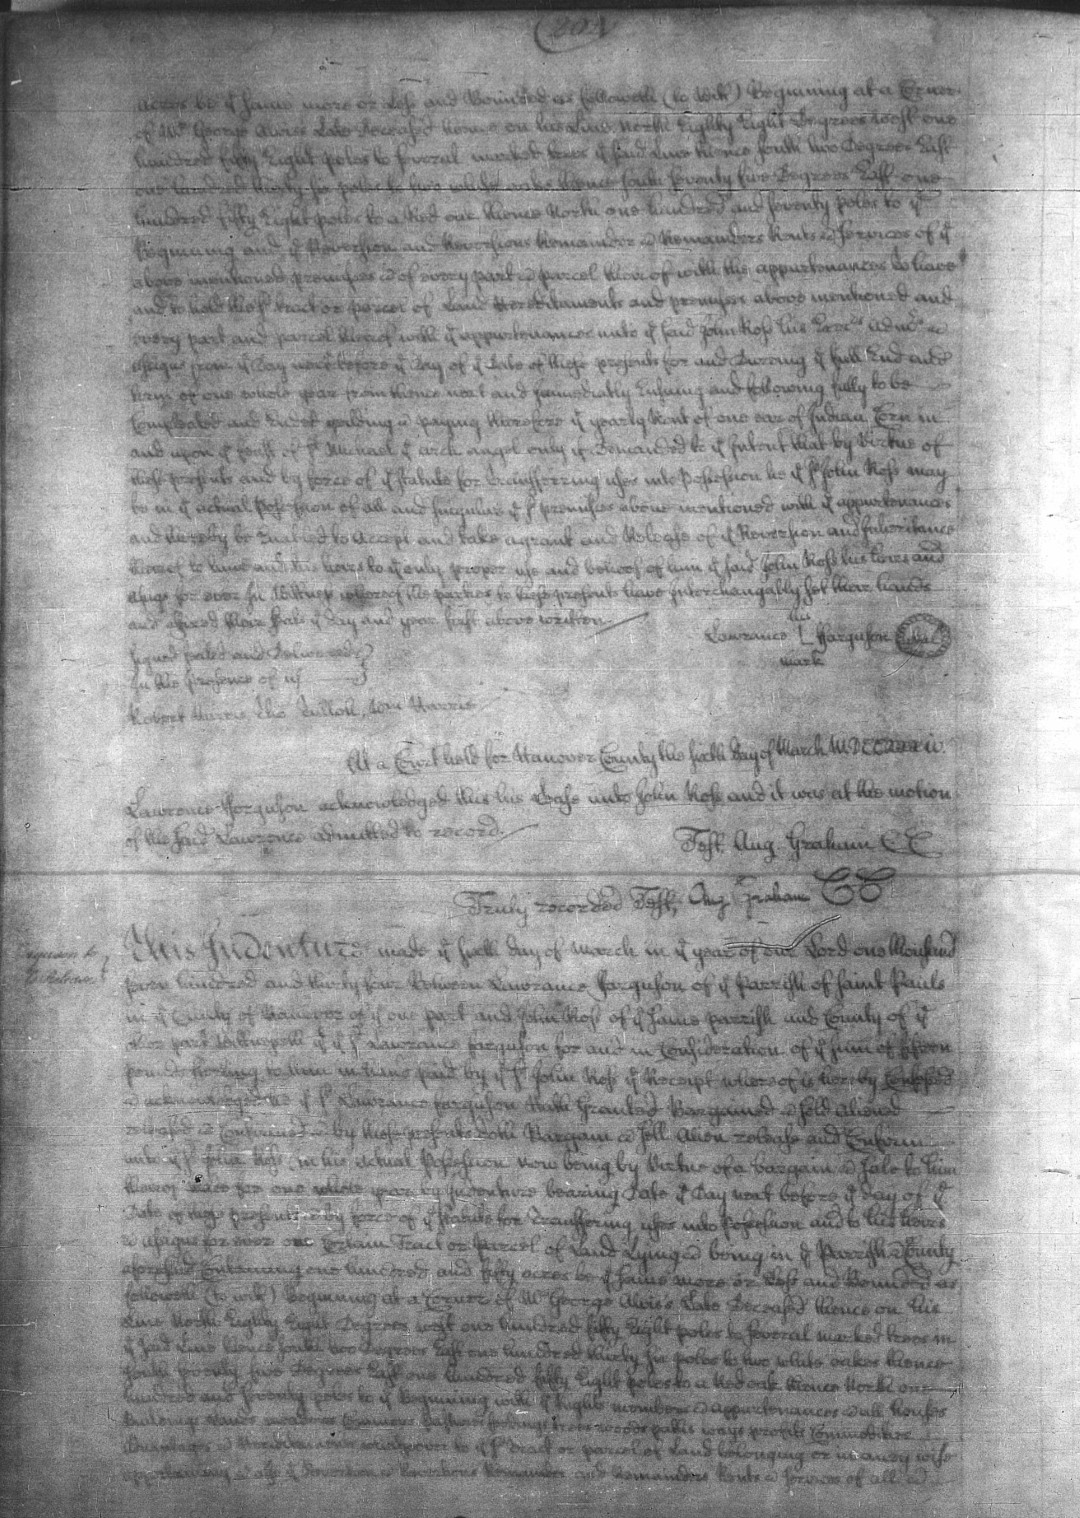 (204
acres be ye same more or less and Bounded as followeth (to wit) Beginning at a Corner
of Mr George Alvis's Late Deceased thence on his Line North Eighty Eight Degrees West one
hundred fifty Eight poles to several marked trees in ye said Line thence South two Degrees East
one hundred thirty six poles to two white oakes thence South Seventy five Degrees East one
hundred fifty Eight poles to a Red oak thence North one hundred and seventy poles to ye
Beginning and ye Reversion and Reversions Remainder & Remainders Rents & Services of ye
above mentioned premises & of every part & parcel thereof with the appurtenances to have
and to hold this tract or parcel of Land Hereditaments and premises above mentioned and
every part and parcel thereof with ye appurtenances unto ye said John Ross his Exrs Admrs &
assigns from ye Day next before ye Day of ye Date of these presents for and During ye full End and
term of one whole year from thence next and Immediatly Ensuing and following fully to be
Compleated and Ended yeilding & paying therefore ye yearly Rent of one ear of Indian Corn in
and upon ye feast of St Michael ye arch angel only if Demanded to ye Intent that by Virtue of
these presents and by force of ye Statute for Transferring uses into Possession he ye sd John Ross may
be in ye actual Possession of all and singular ye sd premises above mentioned with ye appurtenances
and thereby be Enabled to Accept and take a grant and Release of ye Reversion and Inheritance
thereof to him and his heirs to ye only proper use and behoof of him ye said John Ross his heirs and
assigns for ever In Witness whereof the parties to these presents have Interchangably set their hands
and affixed their Seals ye day and year first above written
his
Lawrance L Farguson
mark
Signed Sealed and Delivered
In the presence of us
Robert Harris, Tho Tulloh, Wm Harris
At a Court held for Hanover County the sixth Day of March MDCCXXXIV.
Lawrence Forguson acknowledged this his Lease unto John Ross and it was at the motion
of the said Lawrence admitted to record.
Test. Aug. Graham CC
Truly recorded Test, Aug Graham CC
This Indenture made ye sixth day of March in ye year of our Lord one thousand
seven hundred and thirty four Between Lawrance Farguson of ye Parrish of Saint Pauls
in ye County of Hanover of ye one part and John Ross of ye same parrish and County of ye
other part Witnesseth yt ye sd Lawrance farguson for and in Consideration of ye sum of fifteen
pounds Sterling to him in hand paid by ye sd John Ross ye Receipt whereof is hereby Confessed
& acknowledged he ye sd Lawrance farguson Hath Granted Bargained & Sold aliened
released & Confirmed & by these presents doth Bargain & Sell Alien release and Confirm
unto ye sd John Ross (in his actual Possession now being by Virtue of a bargain & Sale to him
thereof made for one whole year by Indenture bearing Date ye Day next before ye day of ye
Date of these presents & by force of ye statute for Transferring uses into Possession and to his heirs
& assigns for ever one Certain Tract or Parcel of Land Lying & being in ye Parrish & County
aforesaid Containing one hundred and fifty acres be ye same more or Less and Bounded as
followeth (to wit) Beginning at a Corner of Mr George Alvis's Late Deceased thence on his
Line North Eighty Eight Degrees west one hundred fifty Eight poles to several marked trees in
ye said Line thence South two Degrees East one hundred thirty six poles to two white oakes thence
South seventy five Degrees East one hundred fifty Eight Poles to a Red oak thence North one
hundred and seventy poles to ye Beginning with ye Rights members & appurtenances & all houses
Buildings meadows Commons Pastures feedings trees woods paths ways profits Commodities
Advantages & Hereditaments whatsoever to ye sd tract or parcel of Land belonging or in any wise
appertaining & also ye Reversion & Reversions Remainder and Remainders Rents & Services of all &